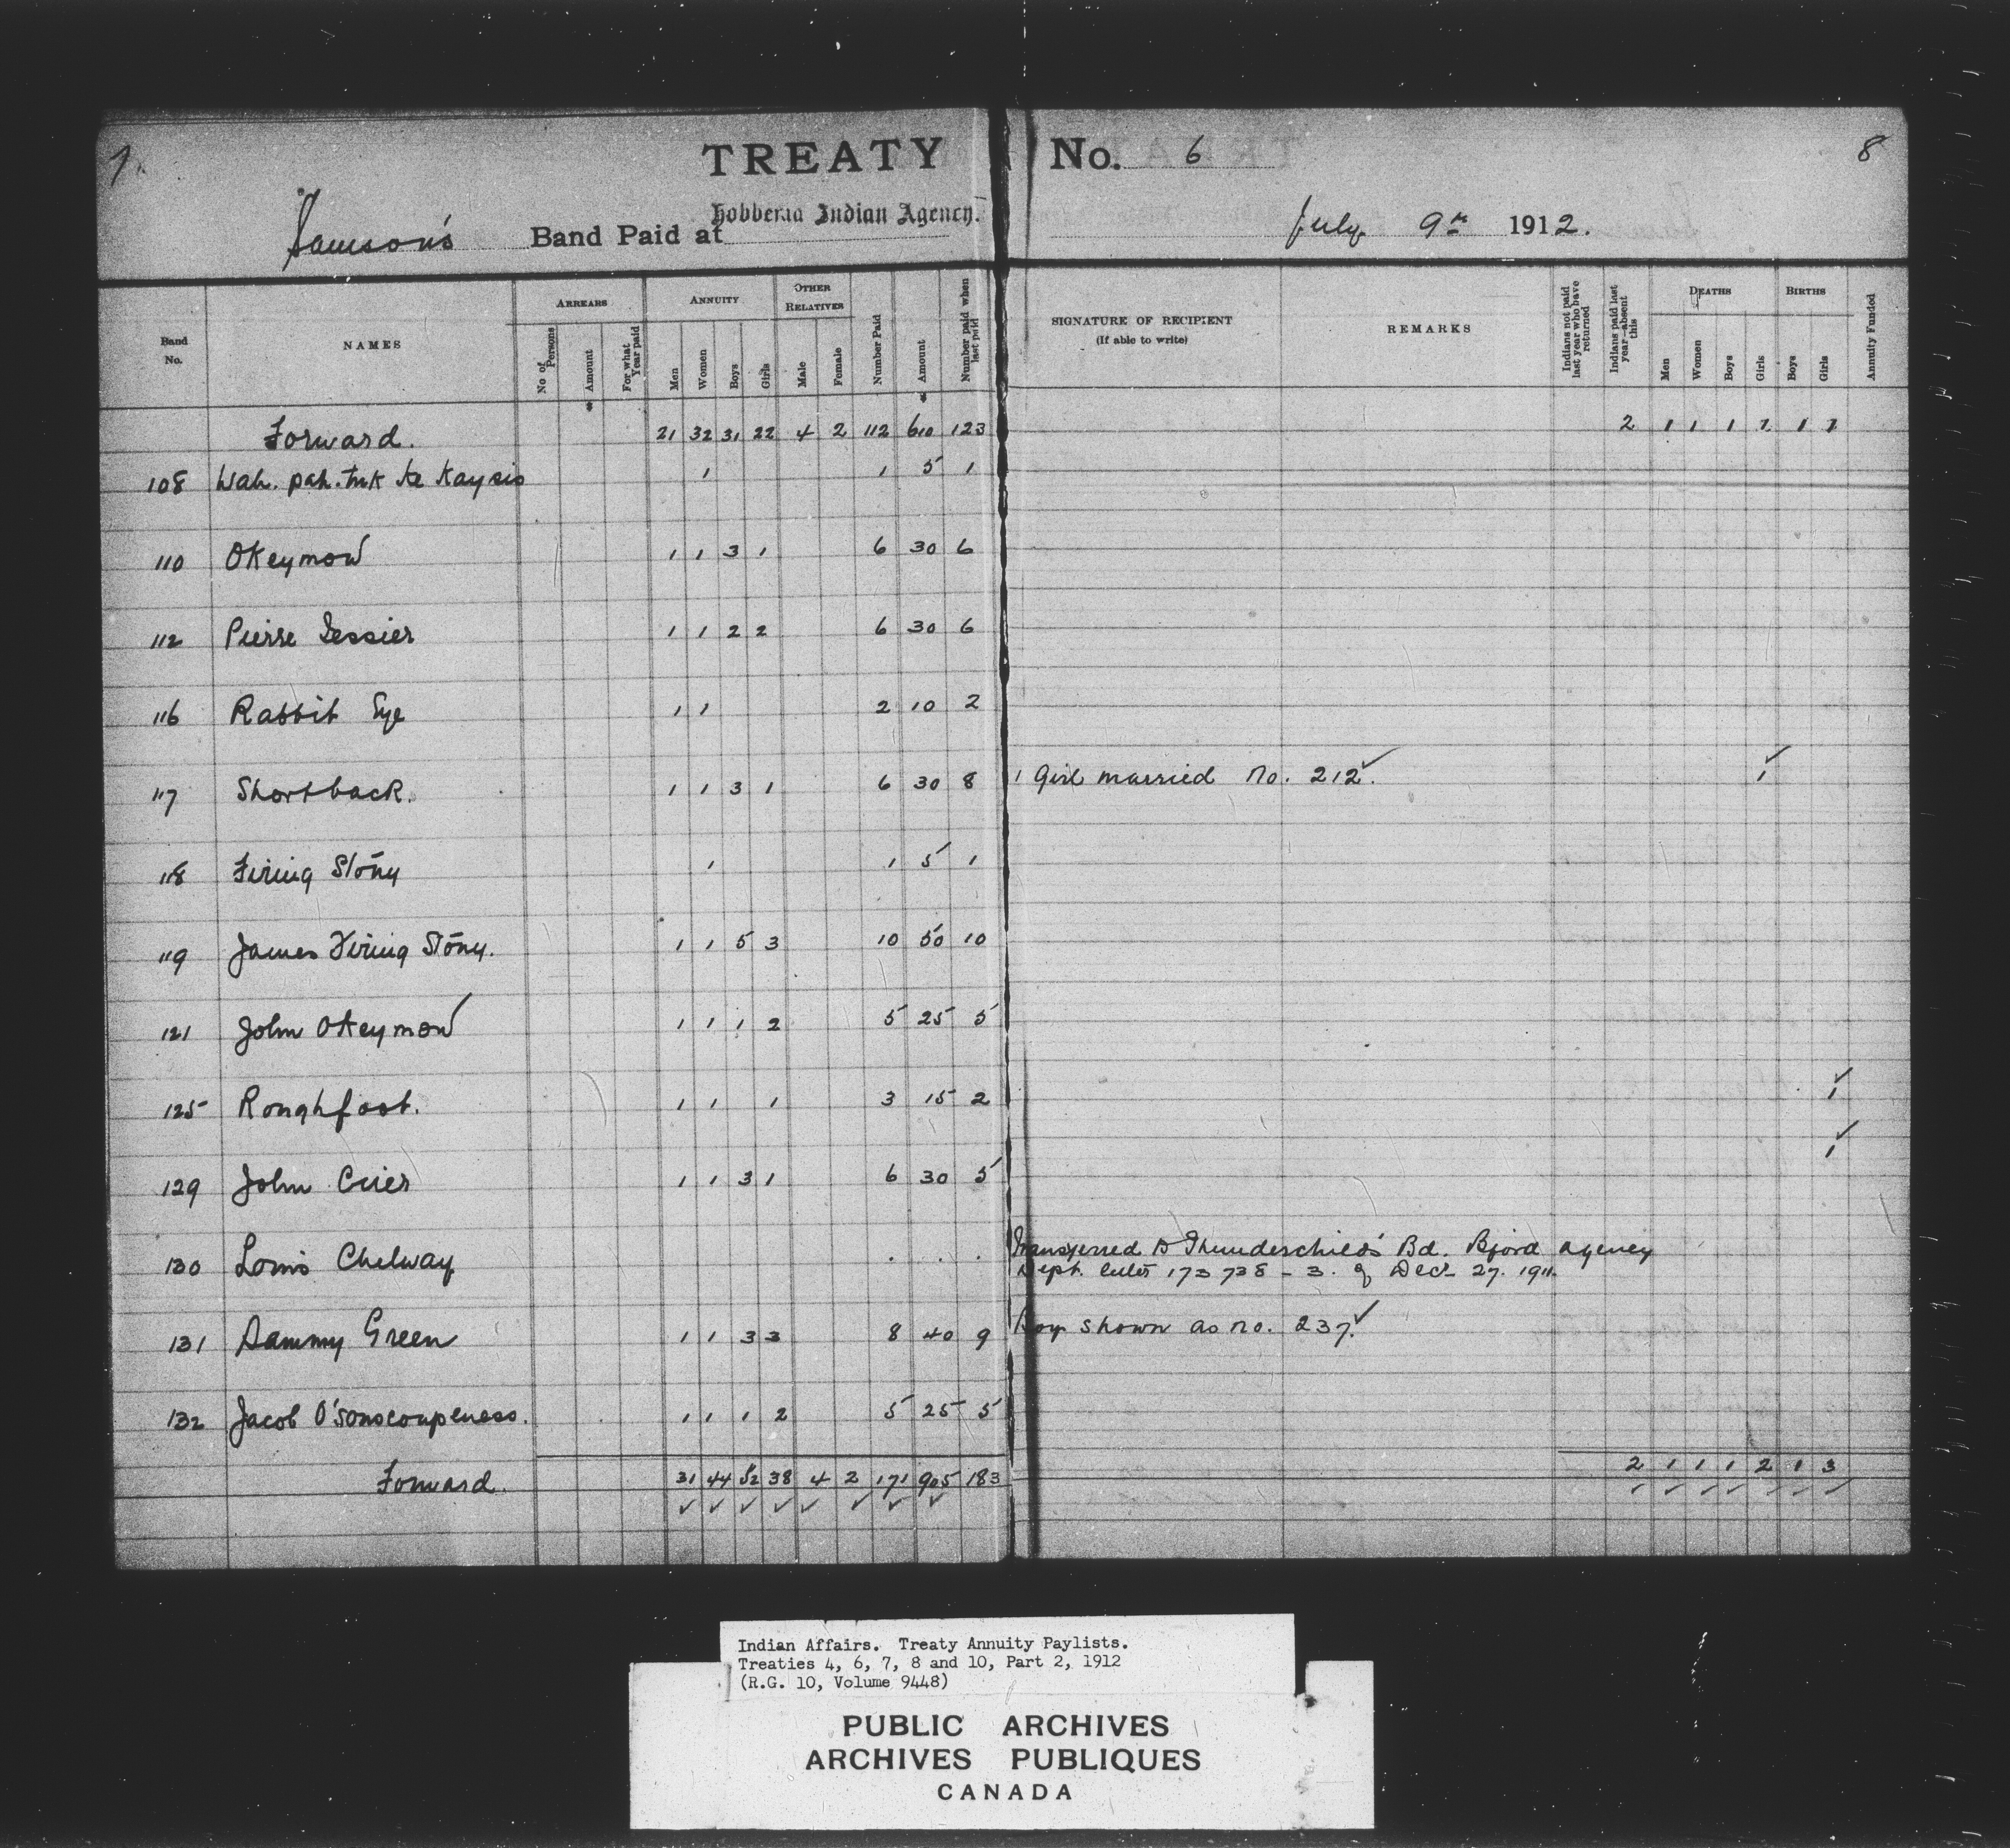 7.
TREATY No. 6
8
Samson's Band Paid at Hobbema Indian Agency. July 9th 1912.
Band No. NAMES ARREARS ANNUITY OTHER RELATIVES Number Paid Amount Number paid when last paid SIGNATURE OF RECIPIENT (If able to write) REMARKS Indians not paid last year who have returned Indians paid last year—absent this DEATHS BIRTHS Annuity Funded
No of Persons Amount For what Year paid Men Women Boys Girls Male Female Men Women Boys Girls Boys Girls
Forward. 21 32 31 22 4 2 112 610 123 2 1 1 1 1 1 1
108 Wah. pah. tuk ke Kaysis 1 1 5 1
110 Okeymow 1 1 3 1 6 30 6
112 Pierre Lessier 1 1 2 2 6 30 6
116 Rabbit Eye 1 1 2 10 2
117 Shortback. 1 1 3 1 6 30 8 1 Girl married No. 212. ✓ 1 ✓
118 Firing Stony 1 1 5 1
119 James Firing Stony. 1 1 5 3 10 50 10
121 John Okeymow 1 1 1 2 5 25 5
125 Roughfoot. 1 1 1 3 15 2 1 ✓
129 John Crier 1 1 3 1 6 30 5 1 ✓
130 Louis Chelway . . . Transferred to Thunderchild's Bd. Bford agency
Dept. letter 173 738 - 3. of Dec 27. 1911.
131 Sammy Green 1 1 3 3 8 40 9 Boy shown as no. 237. ✓
132 Jacob O'sonscoupeness. 1 1 1 2 5 25 5
Forward. 31 44 52 38 4 2 171 905 183 2 1 1 1 2 1 3
✓ ✓ ✓ ✓ ✓ ✓ ✓ ✓ ✓ ✓ ✓ ✓ ✓ ✓ ✓
Indian Affairs. Treaty Annuity Paylists.
Treaties 4, 6, 7, 8 and 10, Part 2, 1912
(R.G. 10, Volume 9448)
PUBLIC ARCHIVES
ARCHIVES PUBLIQUES
CANADA